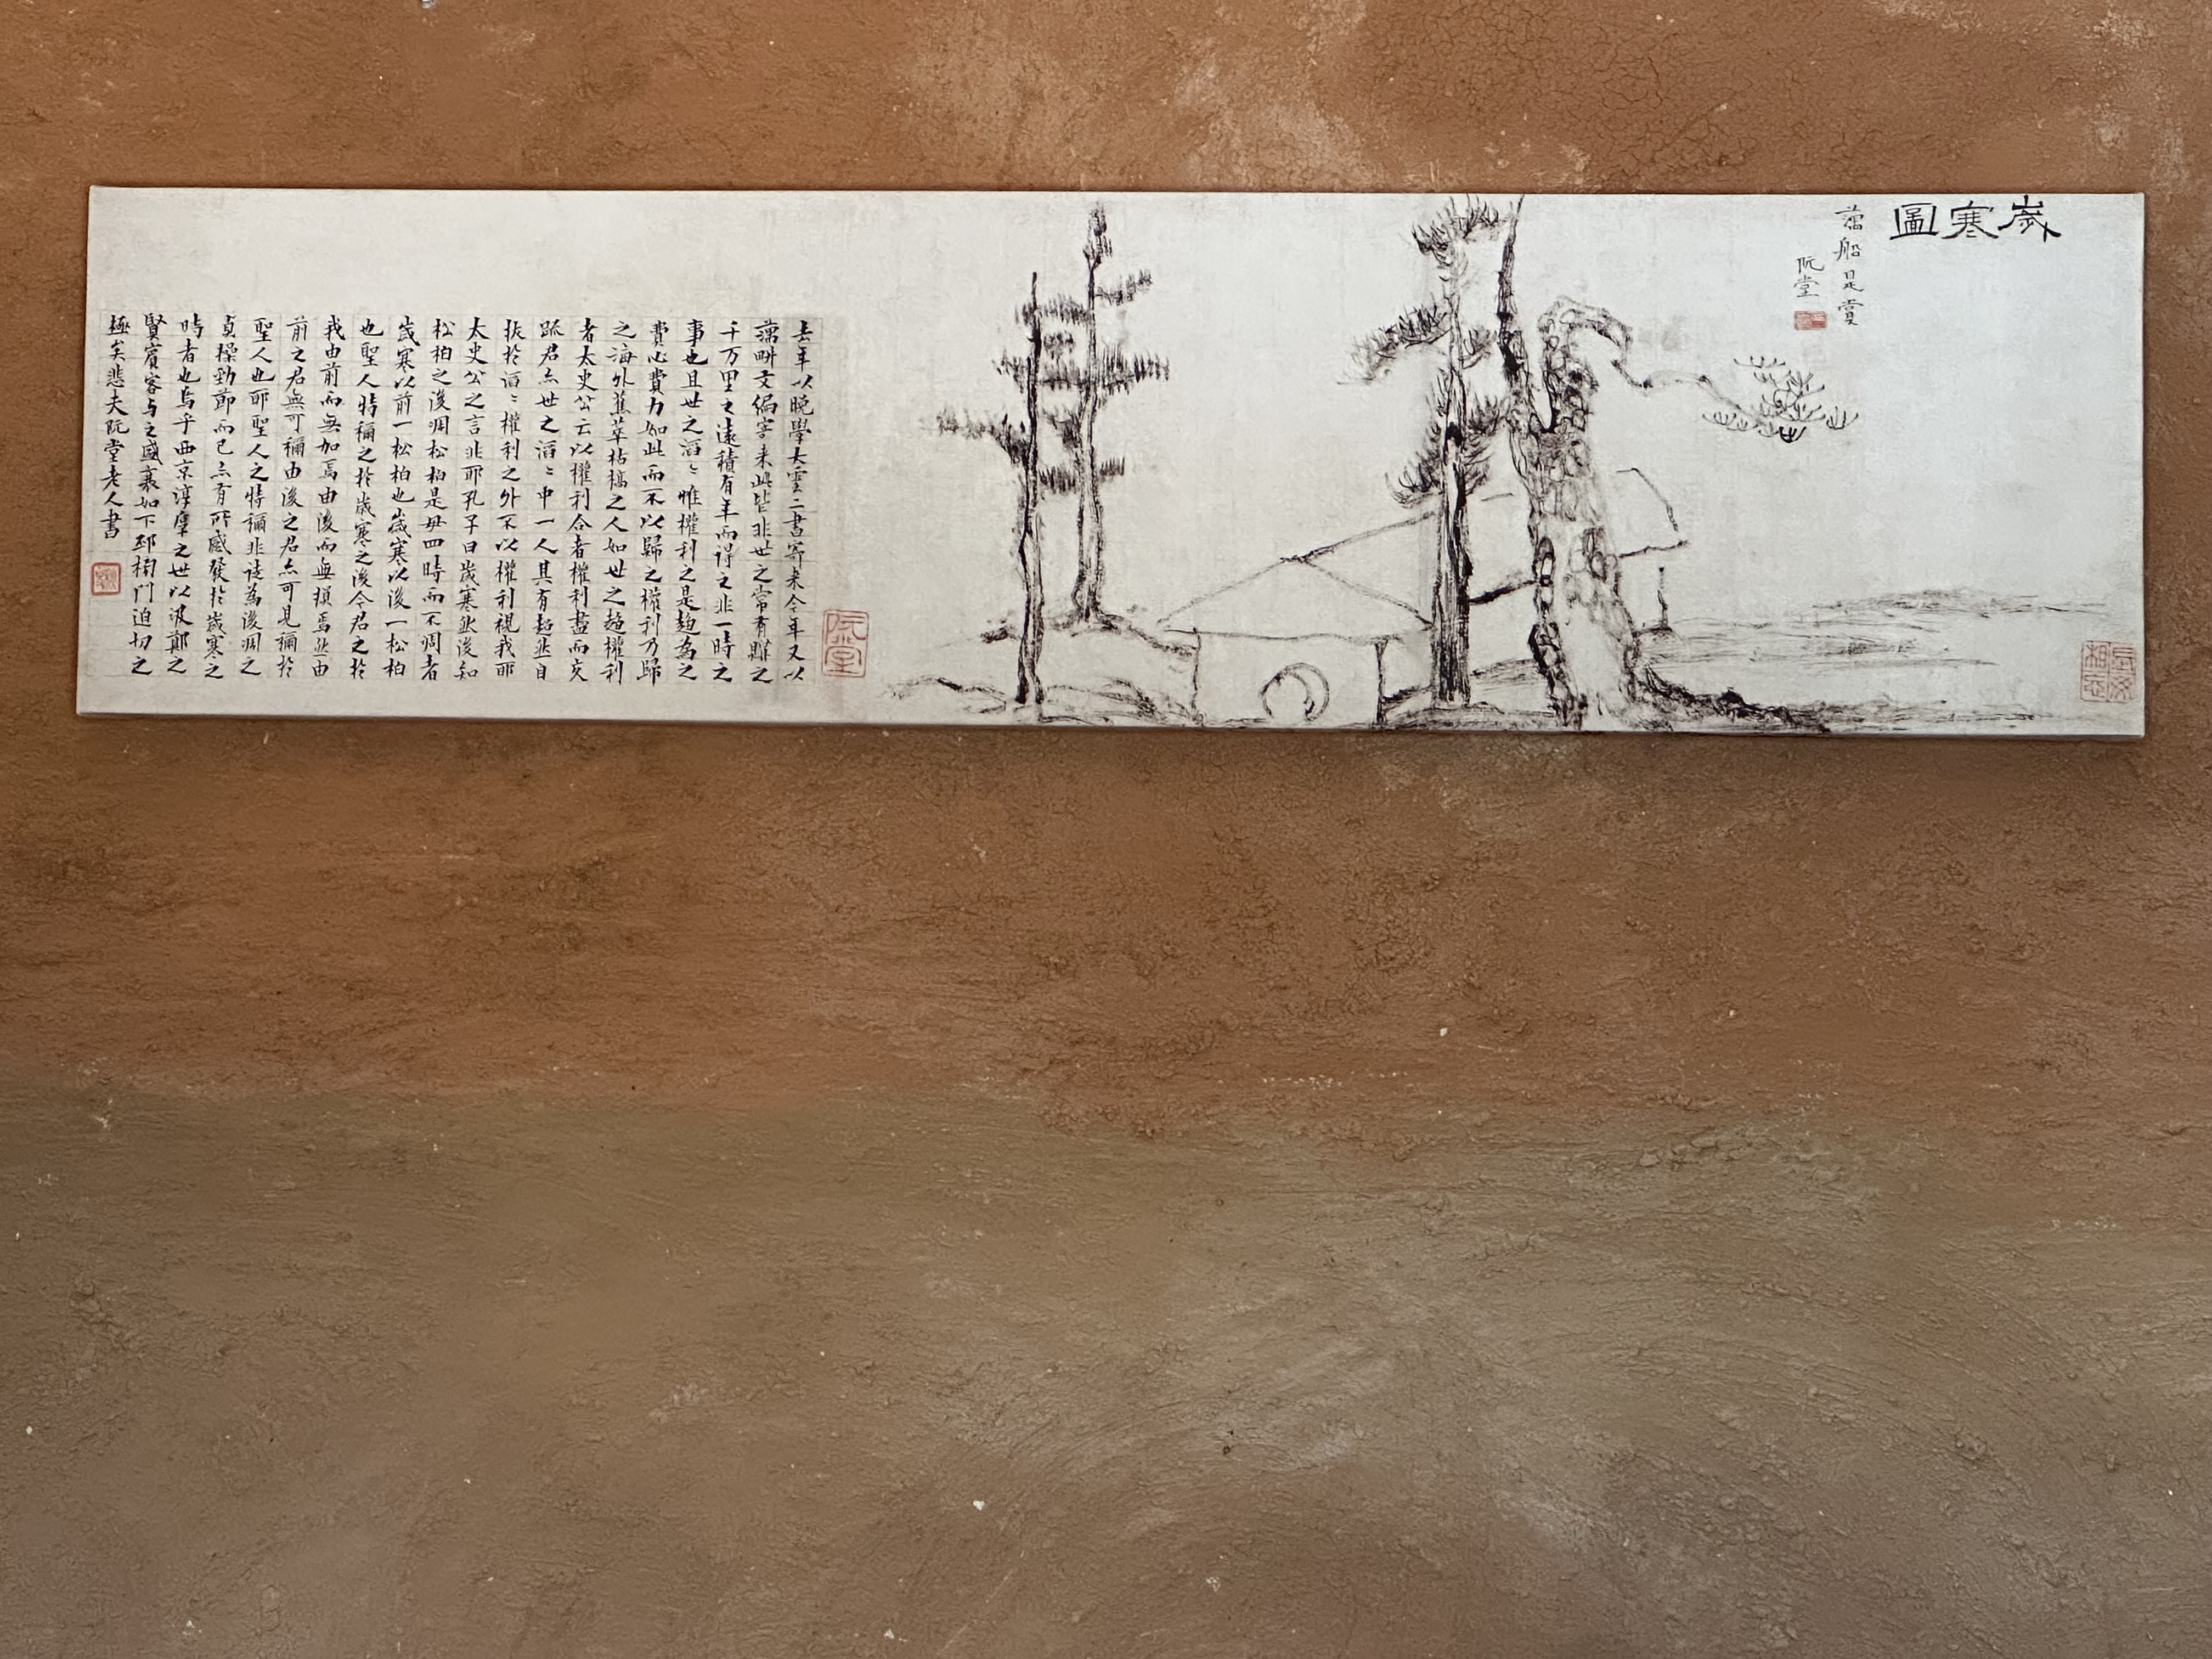 歲寒圖
藕船是賞
阮堂
長毋相忘
阮堂
去年以晚學大雲二書寄來今年又以
藕畊文編寄來此皆非世之常有購之
千万里之遠積有年而得之非一時之
事也且世之滔〻惟權利之是趨為之
費心費力如此而不以歸之權利乃歸
之海外蕉萃枯槁之人如世之趨權利
者太史公云以權利合者權利盡而交
踈君亦世之滔〻中一人其有超然自
拔於滔〻權利之外不以權利視我耶
太史公之言非耶孔子曰歲寒然後知
松柏之後凋松柏是毋四時而不凋者
歲寒以前一松柏也歲寒以後一松柏
也聖人特稱之於歲寒之後今君之於
我由前而無加焉由後而無損焉然由
前之君無可稱由後之君亦可見稱於
聖人也耶聖人之特稱非徒為後凋之
貞操勁節而已亦有所感發於歲寒之
時者也烏乎西京淳厖之世以汲鄭之
賢賓客与之盛衰如下邳榜門迫切之
極矣悲夫阮堂老人書